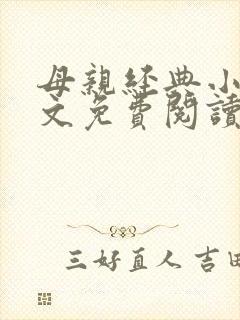 母親經典小
文免費閱讀
三好直人 吉田